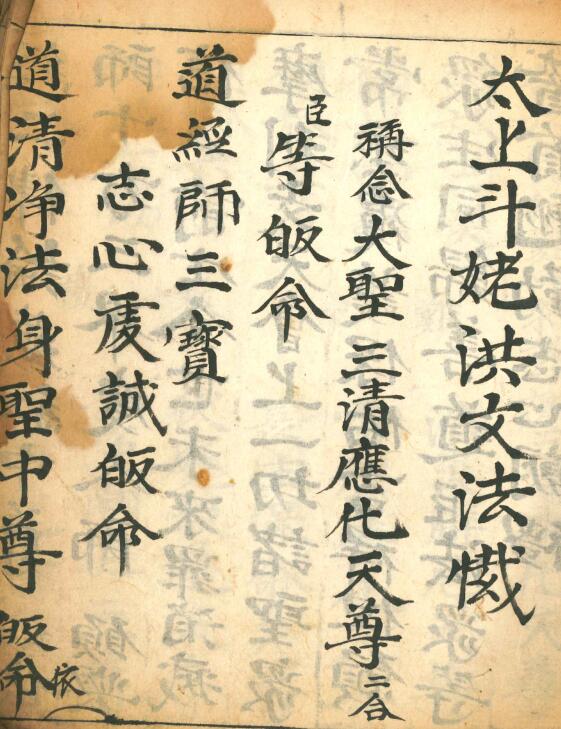 太上斗姥洪文法懴
稱念大聖三清應化天尊二合
臣等皈命
道經師三寶
志心虔誠皈命
道清净法身聖中尊皈命依